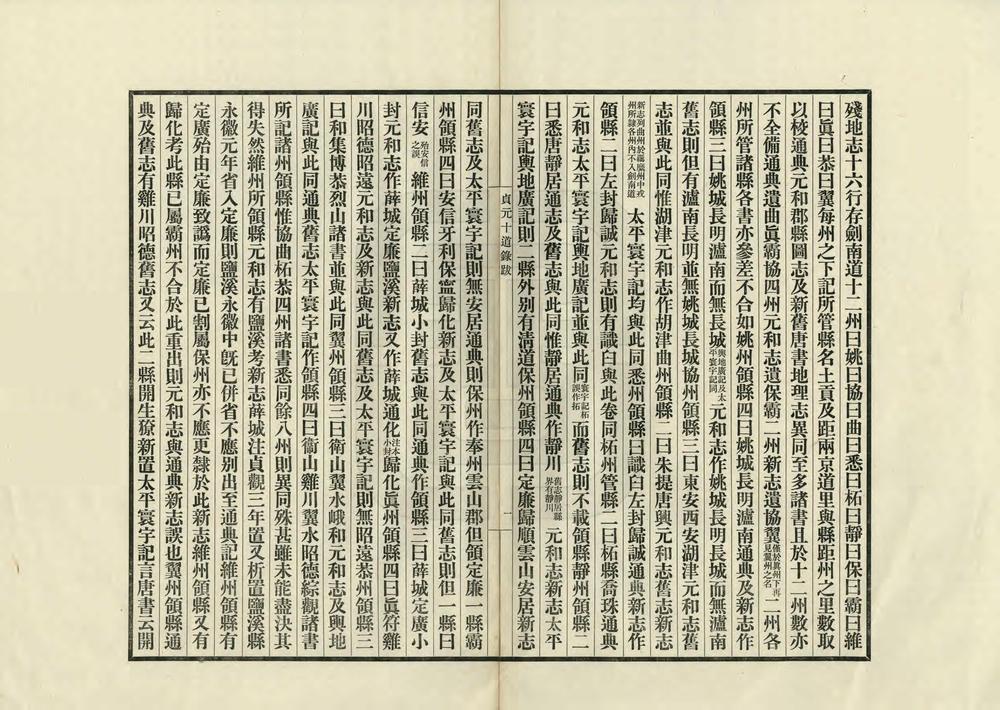 殘地志十六行存劍南道十二州曰姚曰協曰曲曰悉曰柘曰靜曰保曰霸曰維
曰眞曰恭曰翼每州之下記所管縣名土貢及距兩京道里與縣距州之里數取
以校通典元和郡縣圖志及新舊唐書地理志異同至多諸書且於十二州數亦
不全備通典遺曲眞霸協四州元和志遺保霸二州新志遺協翼僅於眞州下再見翼州之名二州各
州所管諸縣各書亦參差不合如姚州領縣四曰姚城長明瀘南通典及新志作
領縣三曰姚城長明瀘南而無長城輿地廣記及太平寰宇記同元和志作姚城長明長城而無瀘南
舊志則但有瀘南長明並無姚城長城協州領縣三曰東安西安湖津元和志舊
志並與此同惟湖津元和志作胡津曲州領縣二曰朱提唐興元和志舊志新志
新志列曲州於羈縻州中戎州所隸各州內不入劍南道太平寰宇記均與此同悉州領縣曰識臼左封歸誠通典新志作
領縣二曰左封歸誠元和志則有識臼與此卷同柘州管縣二曰柘縣喬珠通典
元和志太平寰宇記輿地廣記並與此同寰宇記柘誤作拓而舊志則不載領縣靜州領縣二
曰悉唐靜居通志及舊志與此同惟靜居通典作靜川舊志靜居縣界有靜川元和志新志太平
寰宇記輿地廣記則二縣外別有淸道保州領縣四曰定廉歸順雲山安居新志
貞元十道錄跋
一
同舊志及太平寰宇記則無安居通典則保州作奉州雲山郡但領定廉一縣霸
州領縣四曰安信牙利保寍歸化新志及太平寰宇記與此同舊志則但一縣曰
信安殆安信之誤維州領縣二曰薛城小封舊志與此同通典作領縣三曰薛城定廣小
封元和志作薛城定廉鹽溪新志又作薛城通化注本小封歸化眞州領縣四曰眞符雞
川昭德昭遠元和志及新志與此同舊志及太平寰宇記則無昭遠恭州領縣三
曰和集博恭烈山諸書並與此同翼州領縣三曰衛山翼水峨和元和志及輿地
廣記與此同通典舊志太平寰宇記作領縣四曰衛山雞川翼水昭德綜觀諸書
所記諸州領縣惟協曲柘恭四州諸書悉同餘八州則異同殊甚雖未能盡決其
得失然維州所領縣元和志有鹽溪考新志薛城注貞觀三年置又析置鹽溪縣
永徽元年省入定廉則鹽溪永徽中旣已倂省不應別出至通典記維州領縣有
定廣殆由定廉致譌而定廉已割屬保州亦不應更隸於此新志維州領縣又有
歸化考此縣已屬霸州不合於此重出則元和志與通典新志誤也翼州領縣通
典及舊志有雞川昭德舊志又云此二縣開生獠新置太平寰宇記言唐書云開